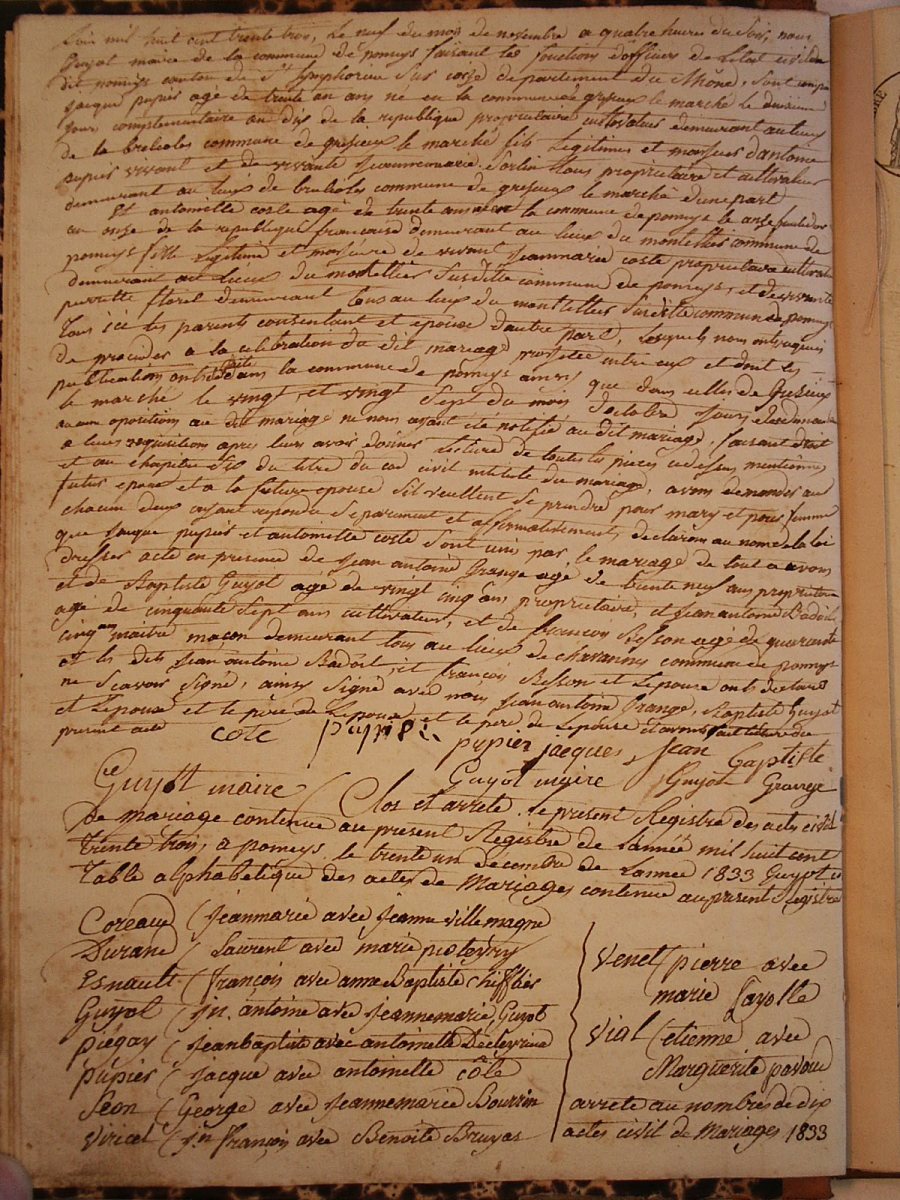 Lan mil huit cent trente trois, Le neuf du mois de novembre a quatre heure du Soir, nous
Guyot maire de la commune de pomeys faisant les fonctions dofficier de Letat civil du
dit pomeys canton de St Symphorien Sur coise departement du Rhône, Sont comparu
jacque pupier agé de trente un ans né en la commune de gresieux le marché le deuxieme
jour complementaire an dix de la republique proprietaire cultivateur demeurant au lieux
de la brebioles commune de gresieux le marché fils Légitimes et majeur dantoine
pupier vivant et de vivante Jeannemarie tous proprietaire et cultivateur
demeurant au lieux de commune de gresieux le marché dune part
Et antoinette coste agé de trente ans née en la commune de pomeys le onze
an onze de la republique francaise demeurant au lieux du montellier commune de
pomeys fille Legitime et majeure de vivant Jeanmarie coste proprietaire cultivateur
demeurant au lieux du montellier Susditte commune de pomeys, et de vivante
pierrette florel demeurant tous au lieux du montellier Susditte commune de pomeys
tous ici les parents consentant et epouse dautre part, Lesquels nous ont requis
de proceder a la celebration du dit mariage projetée entre eux et dont les
publications ont été faite dans la commune de pomeys ainsi que dans celles de Gresieux
le marché le vingt, et vingt Sept du mois Doctobre Jours de dimanche
aucune opositions au dit mariage ne nous ayant été notifié au dit mariage, faisant droit
a leurs requisitions apres leurs avoir donner Lecture de toutes les pieces cidessus mentionné
et au chapitre Six du titre du code civil intitulé du mariage, avons demander au
futur epoux et a la future epouse Sil veullent Se prendre pour mary et pour femme
chacun deux ayant repondu Separement et affirmativement, declarons au nom de la loi
que Jacque pupier et antoinette coste Sont unis par le mariage de tout a avons
dresser acte en presence de Jean antoine Grange agé de trente neuf ans proprietaire
et de Baptiste Guyot agé de vingt cinq ans proprietaire, et jean antoine Badoil
agé de cinquante Sept ans cultivateur, et de françois Besson agé de quarante
cinq ans maitre maçon demeurant tous au lieux de chavannes commune de pomeys
et les dits Jean antoine Badoil, et françois Besson et Lepouse ont declaré
ne Scavoir Signé, ainsy Signé avec nous Jean antoine Grange, Baptiste Guyot
et Lepoux et le père de Lepoux et le pere de Lepouse et avons fait lecture du
present acte
cote pupier pupier jacques, Jean Baptiste
Guyot maire Guyot maire Guyot Grange
Clos et arrete le present Registre des actes civil
de mariage contenue au present Registre de Lannée mil huit cent
trente trois, a pomeys le trente un decembre de Lannee 1833 Guyot
Table alphabétique des actes de Mariages contenue au present Registre
Coreaud (Jeanmarie avec Jeanne villemagne
Durand (Laurent avec marie
Esnault (françois avec anne Baptiste
Guyot (jn. antoine avec Jeannemarie Guyot
piégay (Jeanbaptiste avec antoinette
pupier (jacque avec antoinette côte
Seon (George avec Jeannemarie Bourrin
viricel (jn françois avec Benoite Bruyas
venet (pierre avec
marie fayolle
vial (etienne avec
Marguerite
arrete au nombres de dix
actes civil de Mariages 1833